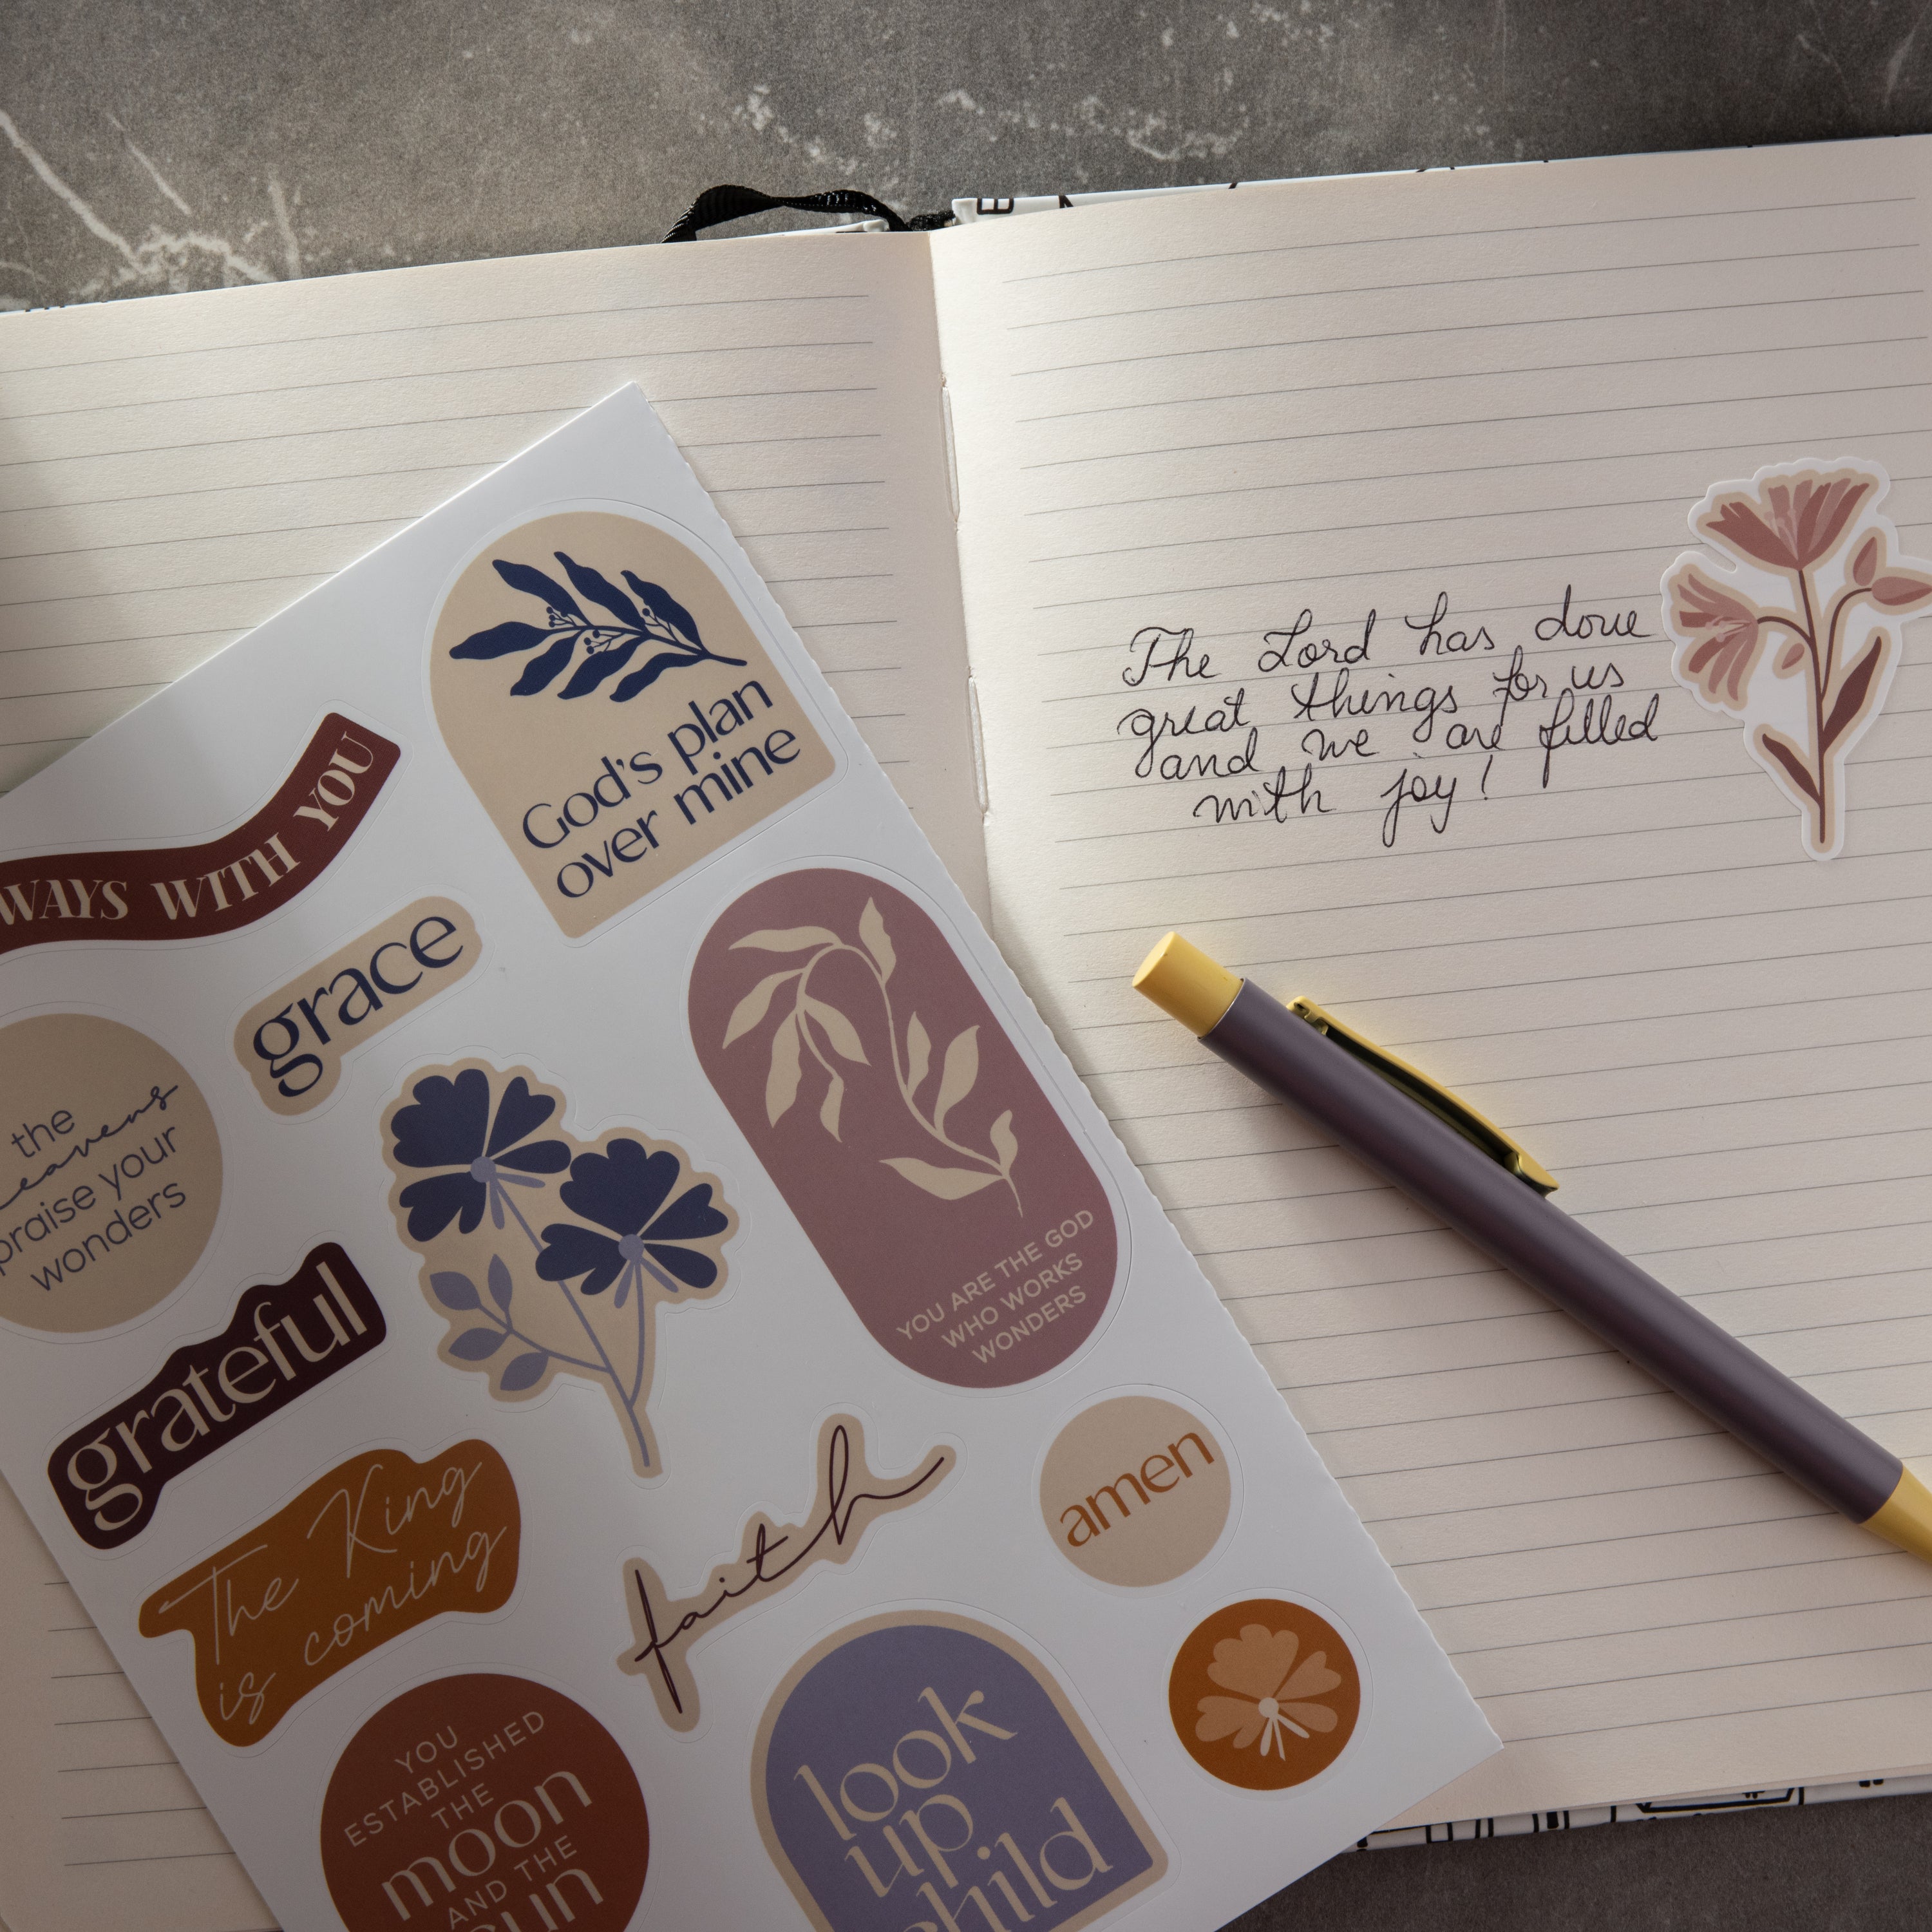 God's plan
over mine
WITH YOU
grace
the
praise your
wonders
YOU ARE THE GOD
WHO WORKS
WONDERS
grateful
The King
is coming
faith
amen
YOU
ESTABLISHED
THE
moon
AND THE
sun
look
up
child
The Lord has done
great things for us
and we are filled
with joy!